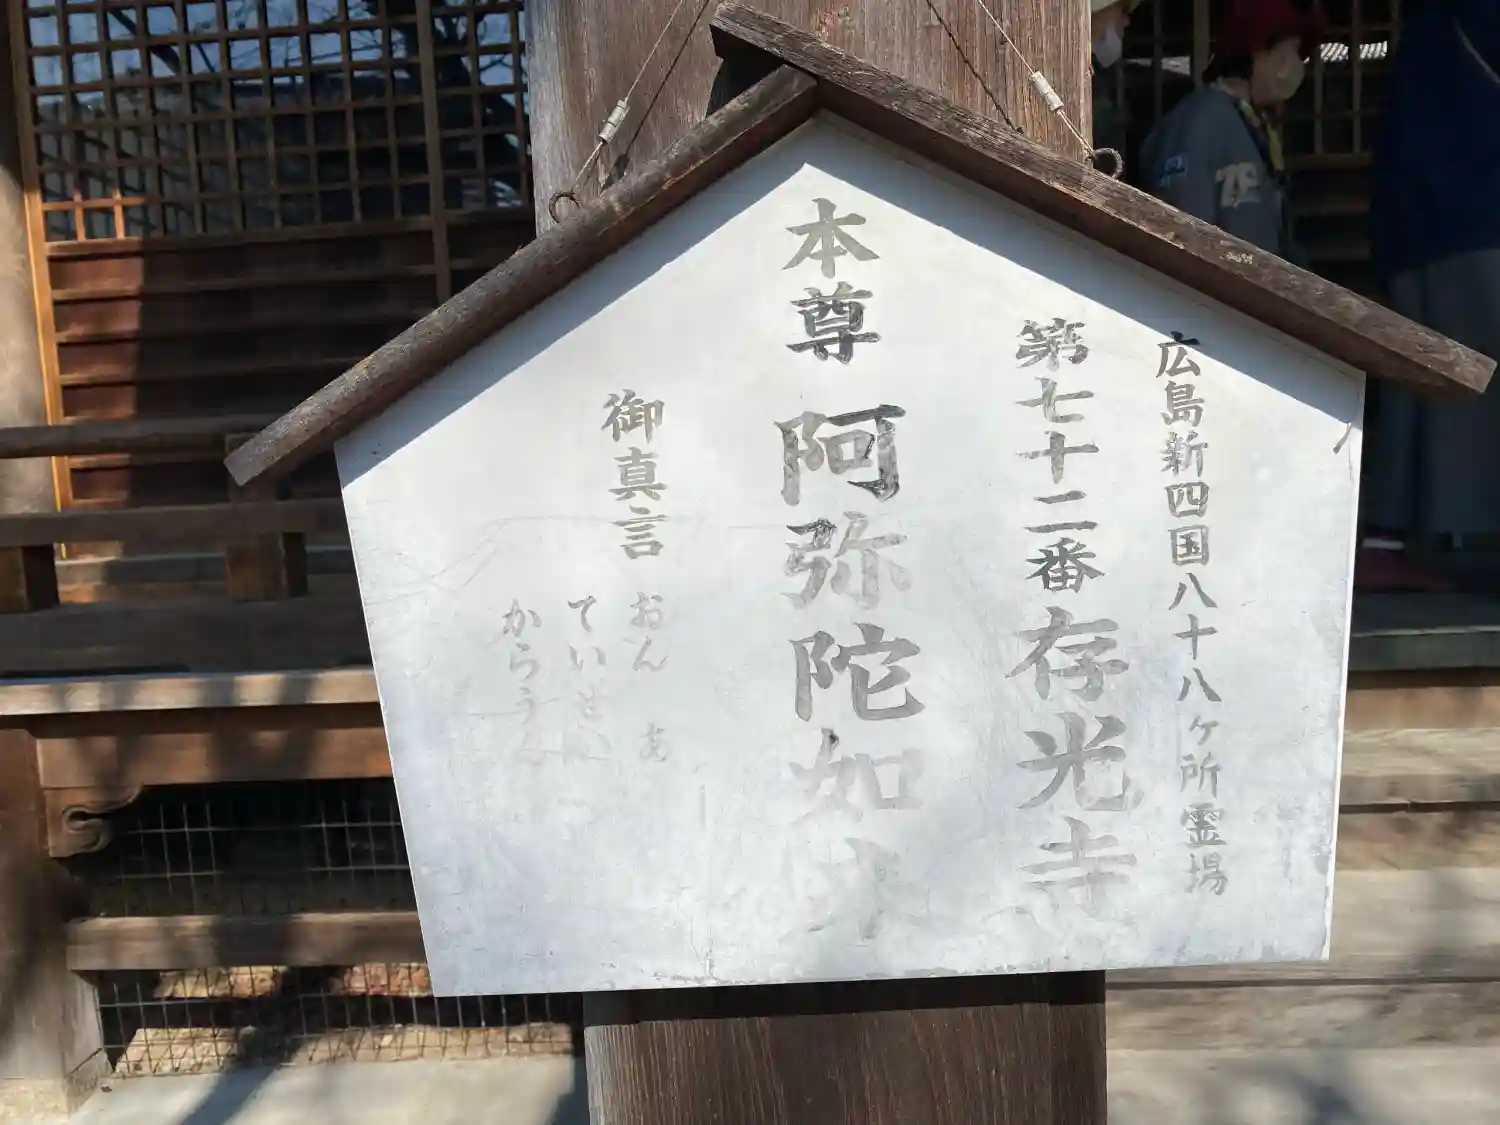 広島新四国八十八ヶ所霊場
第七十二番 存光寺
本尊 阿弥陀如来
御真言 おん あ
ていせい
からうん